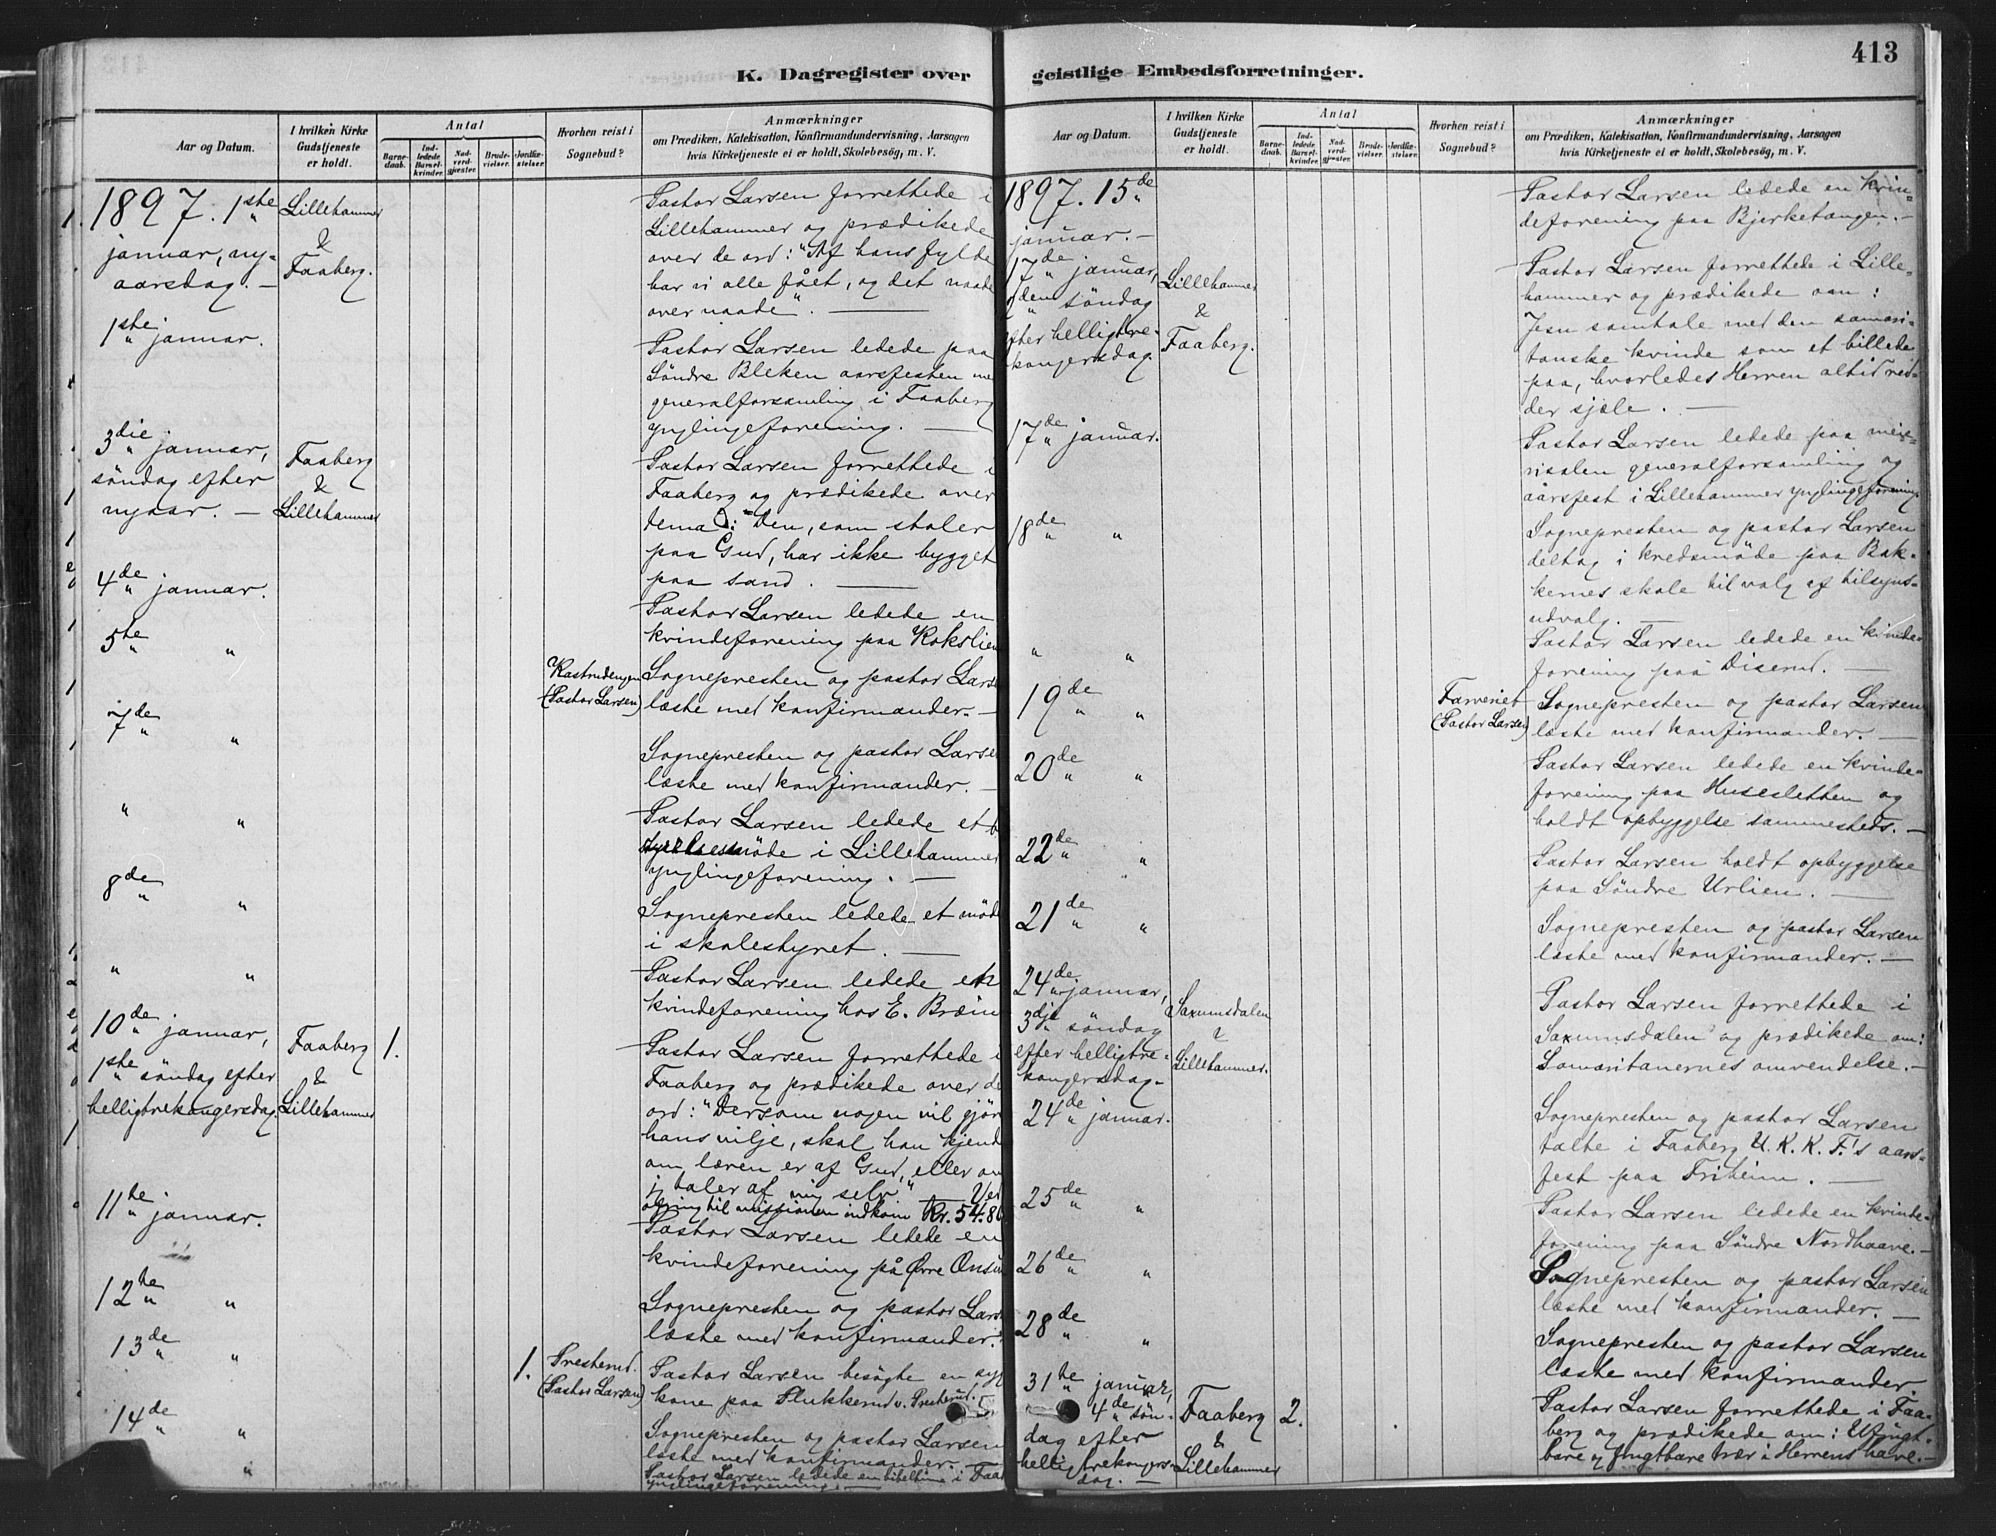 413
K. Dagregister over geistlige Embedsforretninger.
Aar og Datum.
I hvilken Kirke
Gudstjeneste
er holdt.
Antal
Barne-
daab.
Ind-
ledede
Barsel-
kvinder.
Nad-
verd-
gjæster.
Brude-
vielser.
Jordfæ-
stelser.
Hvorhen reist i
Sognebud?
Anmærkninger
om Prædiken, Katekisation, Konfirmandundervisning, Aarsagen
hvis Kirketjeneste ei er holdt, Skolebesøg, m. V.
1897. 1ste
januar, ny-
aarsdag. —
Lillehammer
&
Faaberg.
Pastor Larsen forrettede i
Lillehammer og prædikede
over de ord: "Af hans fylde
har vi alle fået, og det naade
over naade". —
1ste januar.
Pastor Larsen ledede paa
Söndre Bleken aarsfesten me
generalforsamling i Faaberg
ynglingeforening. —
3die januar,
söndag efter
nyaar. —
Faaberg
&
Lillehammer
Pastor Larsen forrettede i
Faaberg og prædikede over
tema: "Den, som stoler
paa Gud, har ikke bygget
paa sand. —
4de januar.
Pastor Larsen ledede en
kvindeforening paa Rokslien
5te "
Rastrudengen
(Pastor Larsen)
Sognepresten og pastor Lars
læste med konfirmander. —
7de "
Sognepresten og pastor Larsen
læste med konfirmander. —
" "
Pastor Larsen ledede et b
styrelsesmöde i Lillehammer
ynglingeforening. —
8de "
Sognepresten ledede et möde
i skolestyret. —
" "
Pastor Larsen ledede en
kvindeforening hos E. Bræin
10de januar,
1ste söndag efter
helligtrekongersdag.
Faaberg
&
Lillehammer
1.
Pastor Larsen forrettede i
Faaberg og prædikede over de
ord: "Dersom nogen vil gjör
hans vilje, skal han kjend
om læren er af Gud, eller om
jeg taler af mig selv." Ved
ofring til missionen indkom Kr. 54.80
11te januar.
Pastor Larsen ledede en
kvindeforening på Övre Onsu
12te "
Sognepresten og pastor Lars
læste med konfirmander.
13de "
1.
Presterud.
(Pastor Larsen)
Pastor Larsen besögte en syg
kone paa Plukkerud v. Presterud.
14de "
Sognepresten og pastor Larsen
læste med konfirmander. —
"
Pastor Larsen ledede en bibeltime i Faab
ynglingeforening. —
Aar og Datum.
I hvilken Kirke
Gudstjeneste
er holdt.
Antal
Barne-
daab.
Ind-
ledede
Barsel-
kvinder.
Nad-
verd-
gjæster.
Brude-
vielser.
Jordfæ-
stelser.
Hvorhen reist i
Sognebud?
Anmærkninger
om Prædiken, Katekisation, Konfirmandundervisning, Aarsagen
hvis Kirketjeneste ei er holdt, Skolebesøg, m. V.
1897. 15de
januar. —
Pastor Larsen ledede en kvin-
deforening paa Bjerketangen. —
17de januar,
2den söndag
efter helligtre-
kongersdag.
Lillehammer
&
Faaberg.
Pastor Larsen forrettede i Lille-
hammer og prædikede om:
Jesu samtale med den samari-
tanske kvinde som et billede
paa, hvorledes Herren altid red-
der sjæle. —
17de januar.
Pastor Larsen ledede paa meie-
risalen generalforsamling og
aarsfest i Lillehammer ynglingeforening.
18de "
Sognepresten og pastor Larsen
deltog i kredsmöde paa Bak-
kernes skole til valg af tilsyns-
udvalg. —
" "
Pastor Larsen ledede en kvinde-
forening paa Diserud. —
19de "
Farveriet
(Pastor Larsen)
Sognepresten og pastor Larsen
læste med konfirmander. —
20de "
Pastor Larsen ledede en kvinde-
forening paa Huseslettten og
holdt opbyggelse sammesteds. —
22de "
Pastor Larsen holdt opbyggelse
paa Söndre Urlien. —
21de "
Sognepresten og pastor Larsen
læste med konfirmander. —
24de januar,
3dje söndag
efter helligtre-
kongersdag.
Saxumsdalen
&
Lillehammer.
Pastor Larsen forrettede i
Saxumsdalen og prædikede om:
Samaritanernes omvendelse. —
24de januar.
Sognepresten og pastor Larsen
talte i Faaberg U. K. K. F.'s aars-
fest paa Friheim. —
25de "
Pastor Larsen ledede en kvinde-
forening paa Söndre Nordhaave. —
26de "
Sognepresten og pastor Larsen
læste med konfirmander. —
28de "
Sognepresten og pastor Larsen
læste med konfirmander
31te januar,
4de sön-
dag efter
helligtrekongers-
dag. —
Faaberg
&
Lillehammer
2.
Pastor Larsen forrettede i Faa-
berg og prædikede om: Ufrugt-
bare og frugtbare trær i Herrens have. —